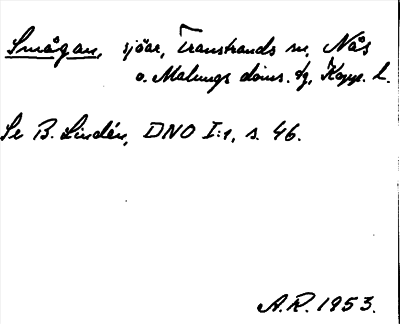 Smågan, sjöar, Transtrands sn, Nås
o. Malungs doms. tg, Kopp. l.
Se B. Lindén, DNO I:1, s. 46.
A.R. 1953.